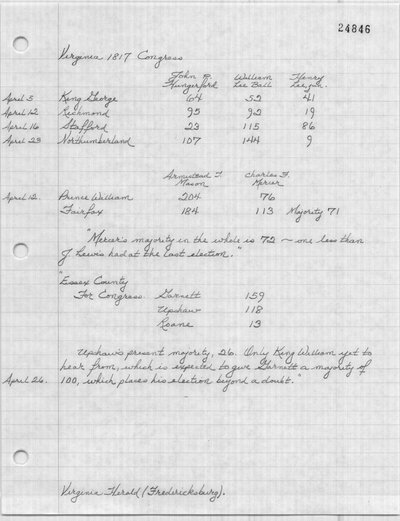 24846
Virginia 1817 Congress
John P. Hungerford William Lee Ball Henry Lee, jun.
April 5 King George 64 52 41
April 12 Richmond 95 92 19
April 16 Stafford 23 115 86
April 23 Northumberland 107 144 9
Armistead T. Mason Charles F. Mercer
April 12. Prince William 204 76
Fairfax 184 113 Majority 71
"Mercer's majority in the whole is 72 ~ one less than
J Lewis had at the last election."
"Essex County
For Congress Garnett 159
Upshaw 118
Roane 13
Upshaw's present majority, 26. Only King William yet to
hear from, which is expected to give Garnett a majority of
April 26. 100, which places his election beyond a doubt."
Virginia Herald (Fredericksburg).